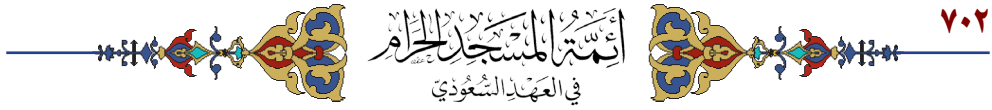 ٧٠٢
أَئِمَّةُ المَسْجِدِ الحَرَامِ
فِي العَهْدِ السُّعُودِيّ